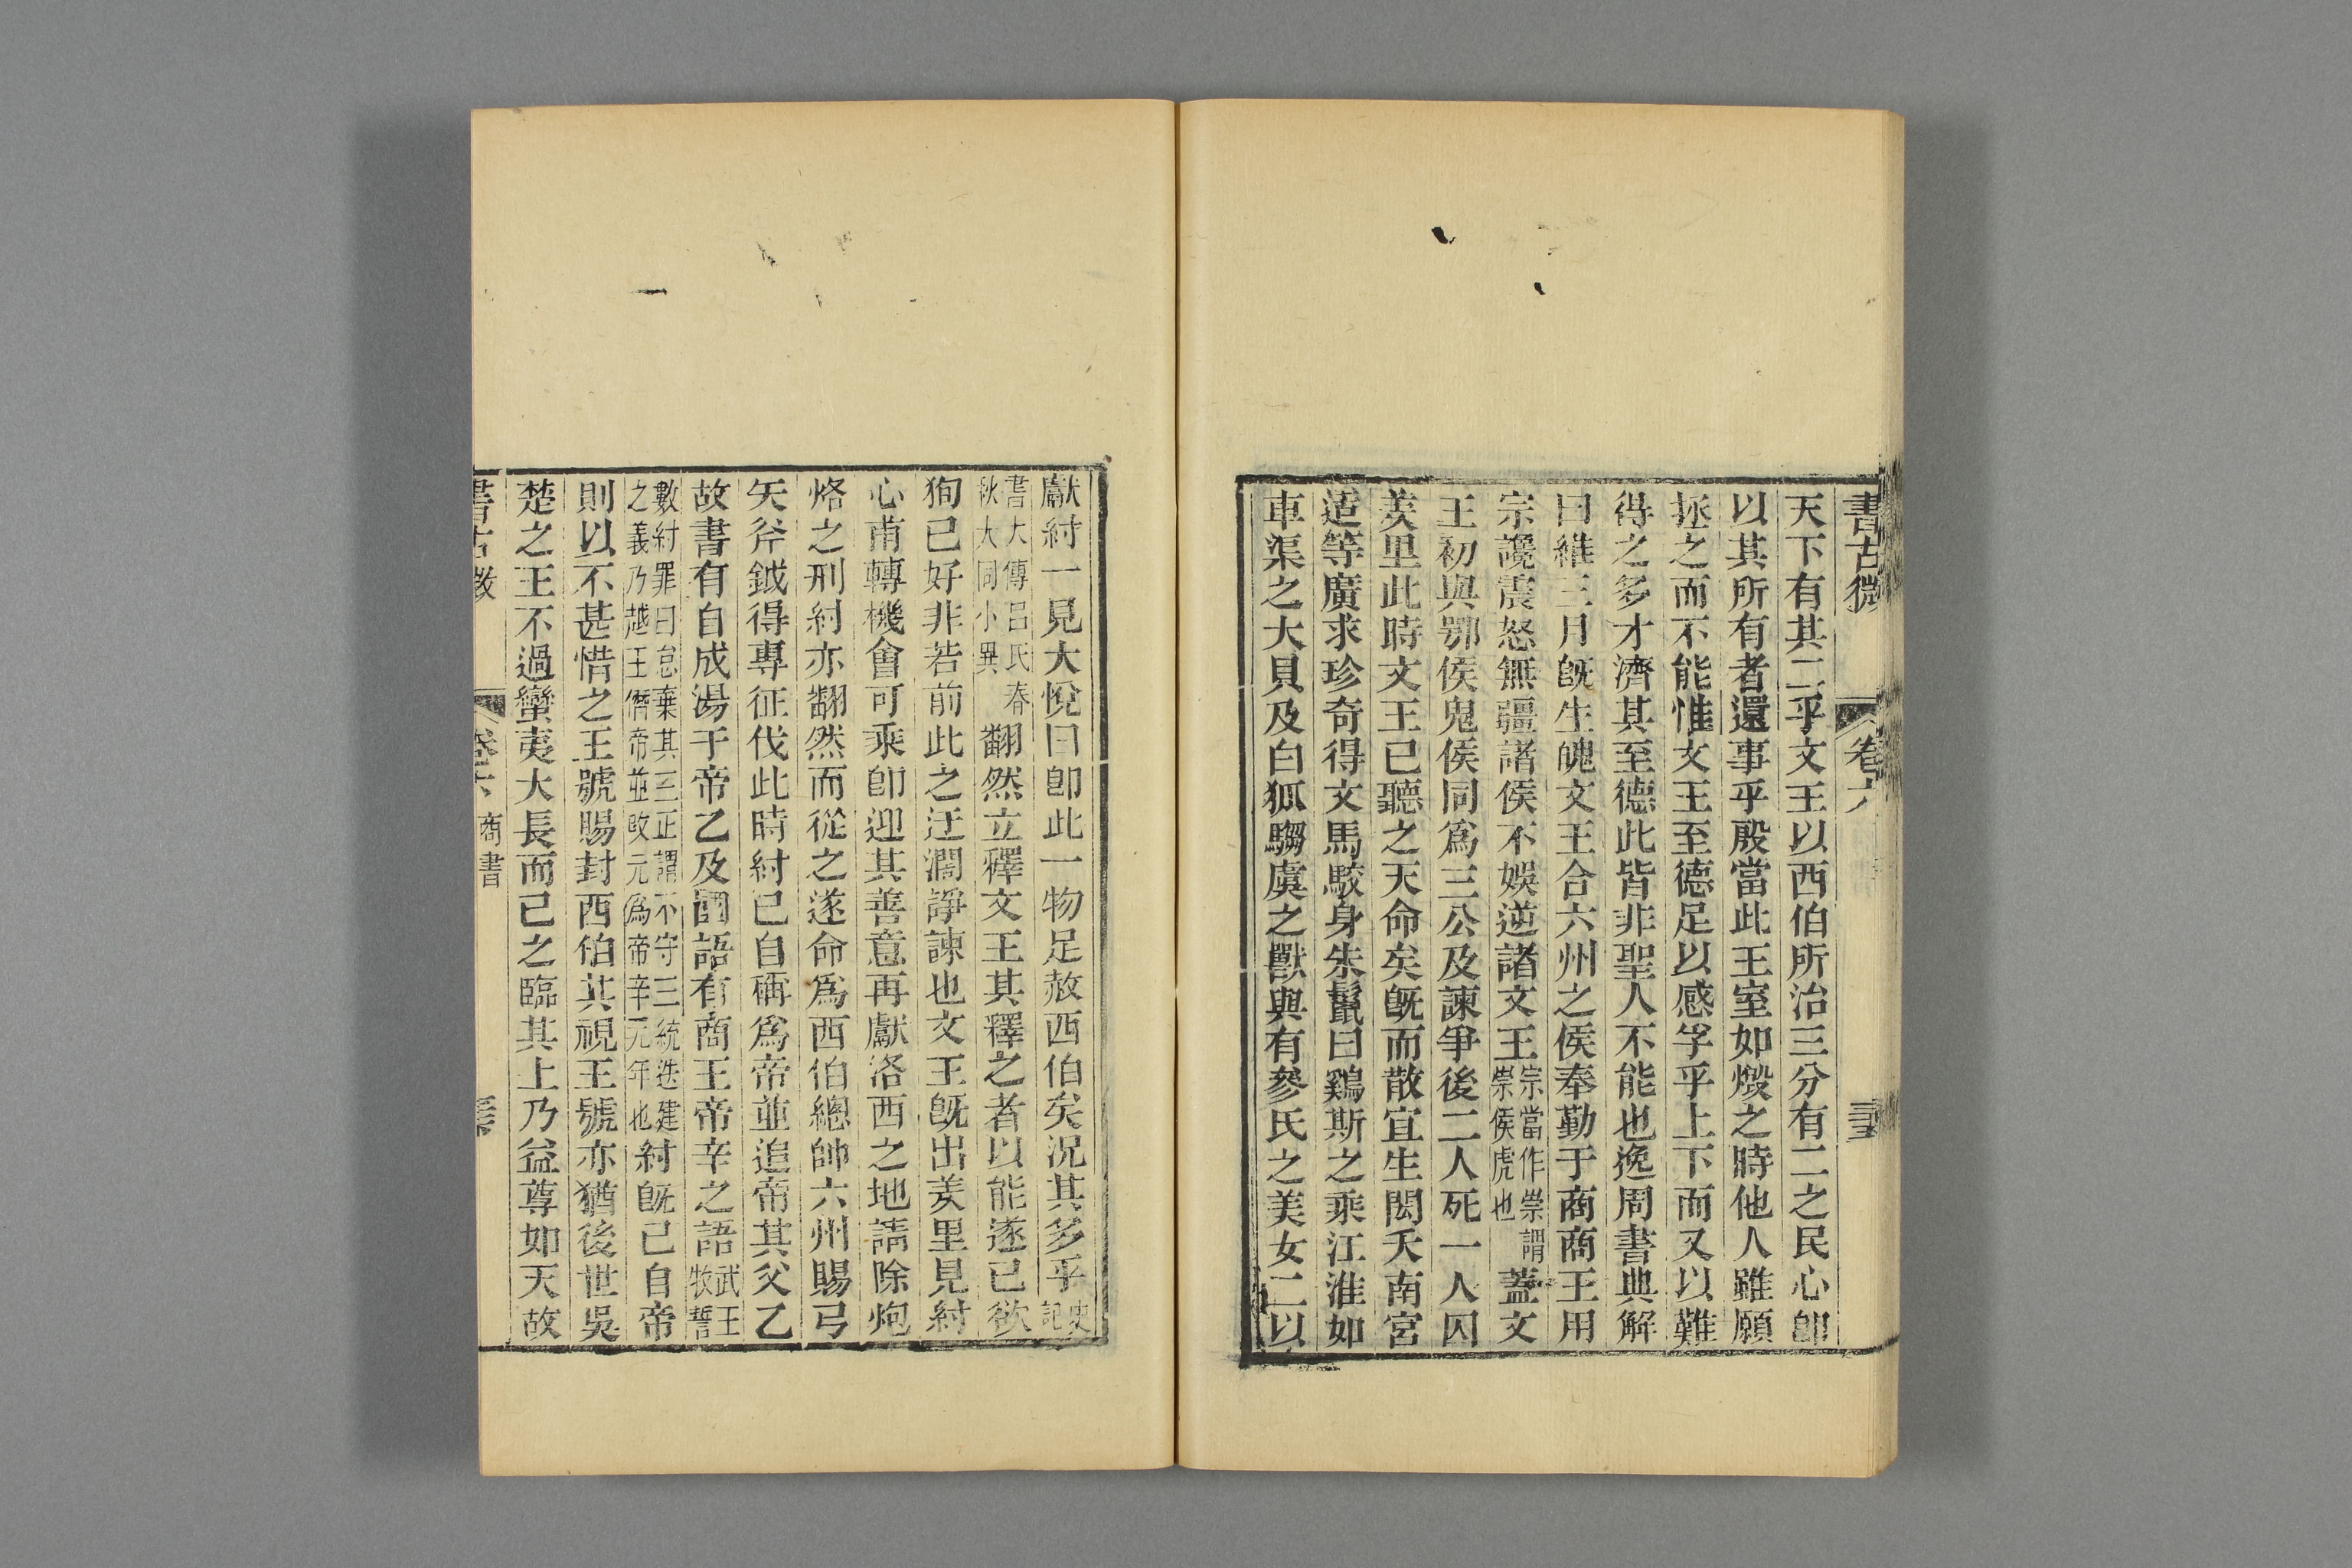 書古微 卷六
天下有其二乎文王以西伯所治三分有二之民心卽
以其所有者還事乎殷當此王室如燬之時他人雖願
拯之而不能惟文王至德足以感孚乎上下而又以難
得之多才濟其至德此皆非聖人不能也逸周書典解
曰維三月旣生魄文王合六州之侯奉勤于商商王用
宗讒震怒無疆諸侯不娛逆諸文王宗當作崇謂崇侯虎也蓋文
王初與鄂侯鬼侯同爲三公及諫爭後二人死一人囚
羑里此時文王已聽之天命矣旣而散宜生閎夭南宮
适等廣求珍奇得文馬駮身朱鬣曰鷄斯之乘江淮如
車渠之大貝及白狐騶虞之獸與有參氏之美女二以
獻紂一見大悅曰卽此一物足赦西伯矣況其多乎史記
書大傳呂氏春秋大同小異翻然立釋文王其釋之者以能遂己欲
狥己好非若前此之迂濶諍諫也文王旣出羑里見紂
心甫轉機會可乘卽迎其善意再獻洛西之地請除炮
烙之刑紂亦翻然而從之遂命爲西伯總帥六州賜弓
矢斧鉞得專征伐此時紂已自稱爲帝並追帝其父乙
故書有自成湯于帝乙及國語有商王帝辛之語武王牧誓
數紂罪曰怠棄其三正謂不守三統迭建之義乃越王僭帝並改元爲帝辛元年也紂旣已自帝
則以不甚惜之王號賜封西伯其視王號亦猶後世吳
楚之王不過蠻夷大長而已之臨其上乃益尊如天故
書古微 卷六 商書